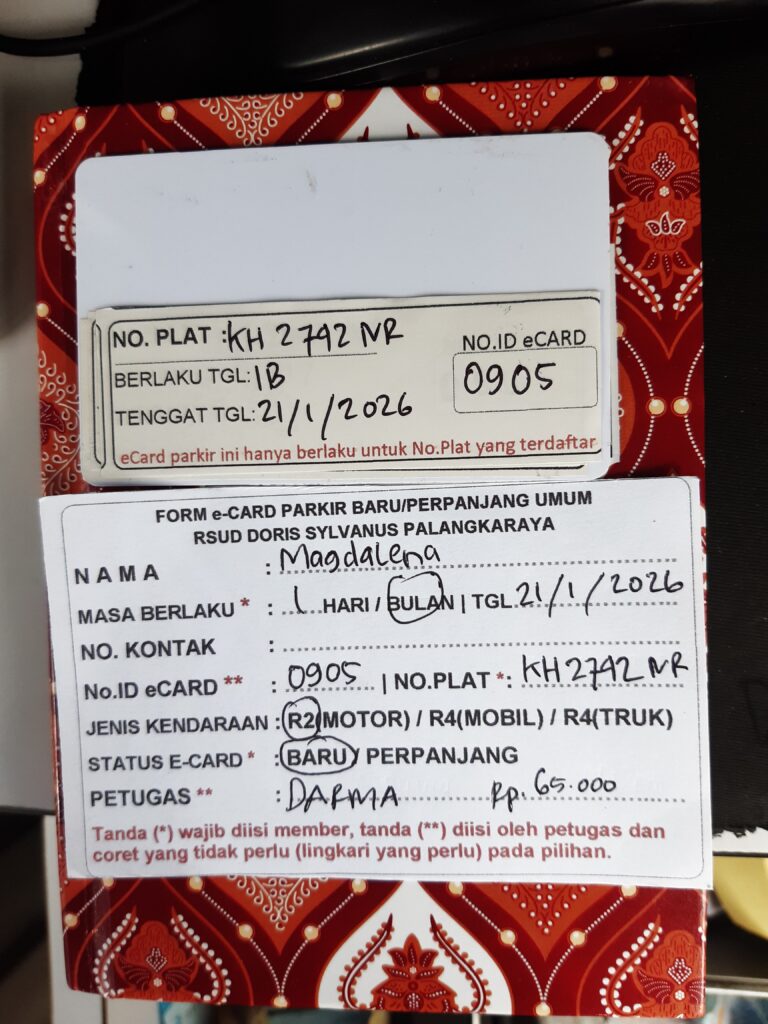 NO. PLAT : KH 2742 NR
NO.ID eCARD
BERLAKU TGL: 1B
0905
TENGGAT TGL: 21/1/2026
eCard parkir ini hanya berlaku untuk No.Plat yang terdaftar
FORM e-CARD PARKIR BARU/PERPANJANG UMUM
RSUD DORIS SYLVANUS PALANGKARAYA
NAMA : Magdalena
MASA BERLAKU * : 1 HARI / BULAN | TGL. 21/1/2026
NO. KONTAK :
No.ID eCARD ** : 0905 | NO.PLAT *: KH 2742 NR
JENIS KENDARAAN : R2(MOTOR) / R4(MOBIL) / R4(TRUK)
STATUS E-CARD * : BARU / PERPANJANG
PETUGAS ** : DARMA Rp. 65.000
Tanda (*) wajib diisi member, tanda (**) diisi oleh petugas dan
coret yang tidak perlu (lingkari yang perlu) pada pilihan.